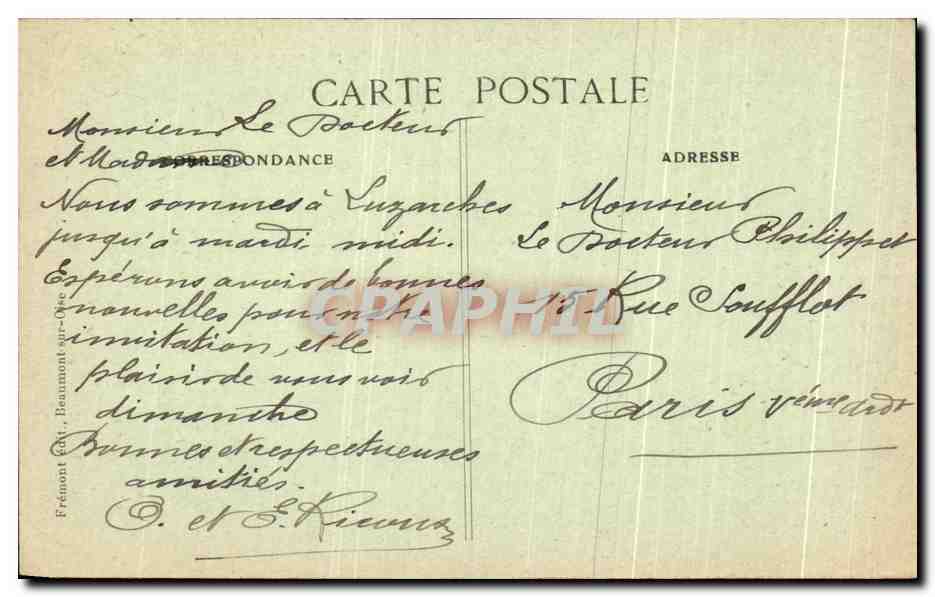 CARTE POSTALE
CORRESPONDANCE
ADRESSE
Monsieur Le Docteur
et Madame
Nous sommes à Luzarches
jusqu'à mardi midi.
Espérons avoir de bonnes
nouvelles pour notre
invitation, et le
plaisir de vous voir
dimanche
Bonnes et respectueuses
amitiés.
O. et E.
Monsieur
Le Docteur Philippet
15 Rue Soufflot
Paris Vème ardt
Frémont édit., Beaumont-sur-Oise
CPAPHIL